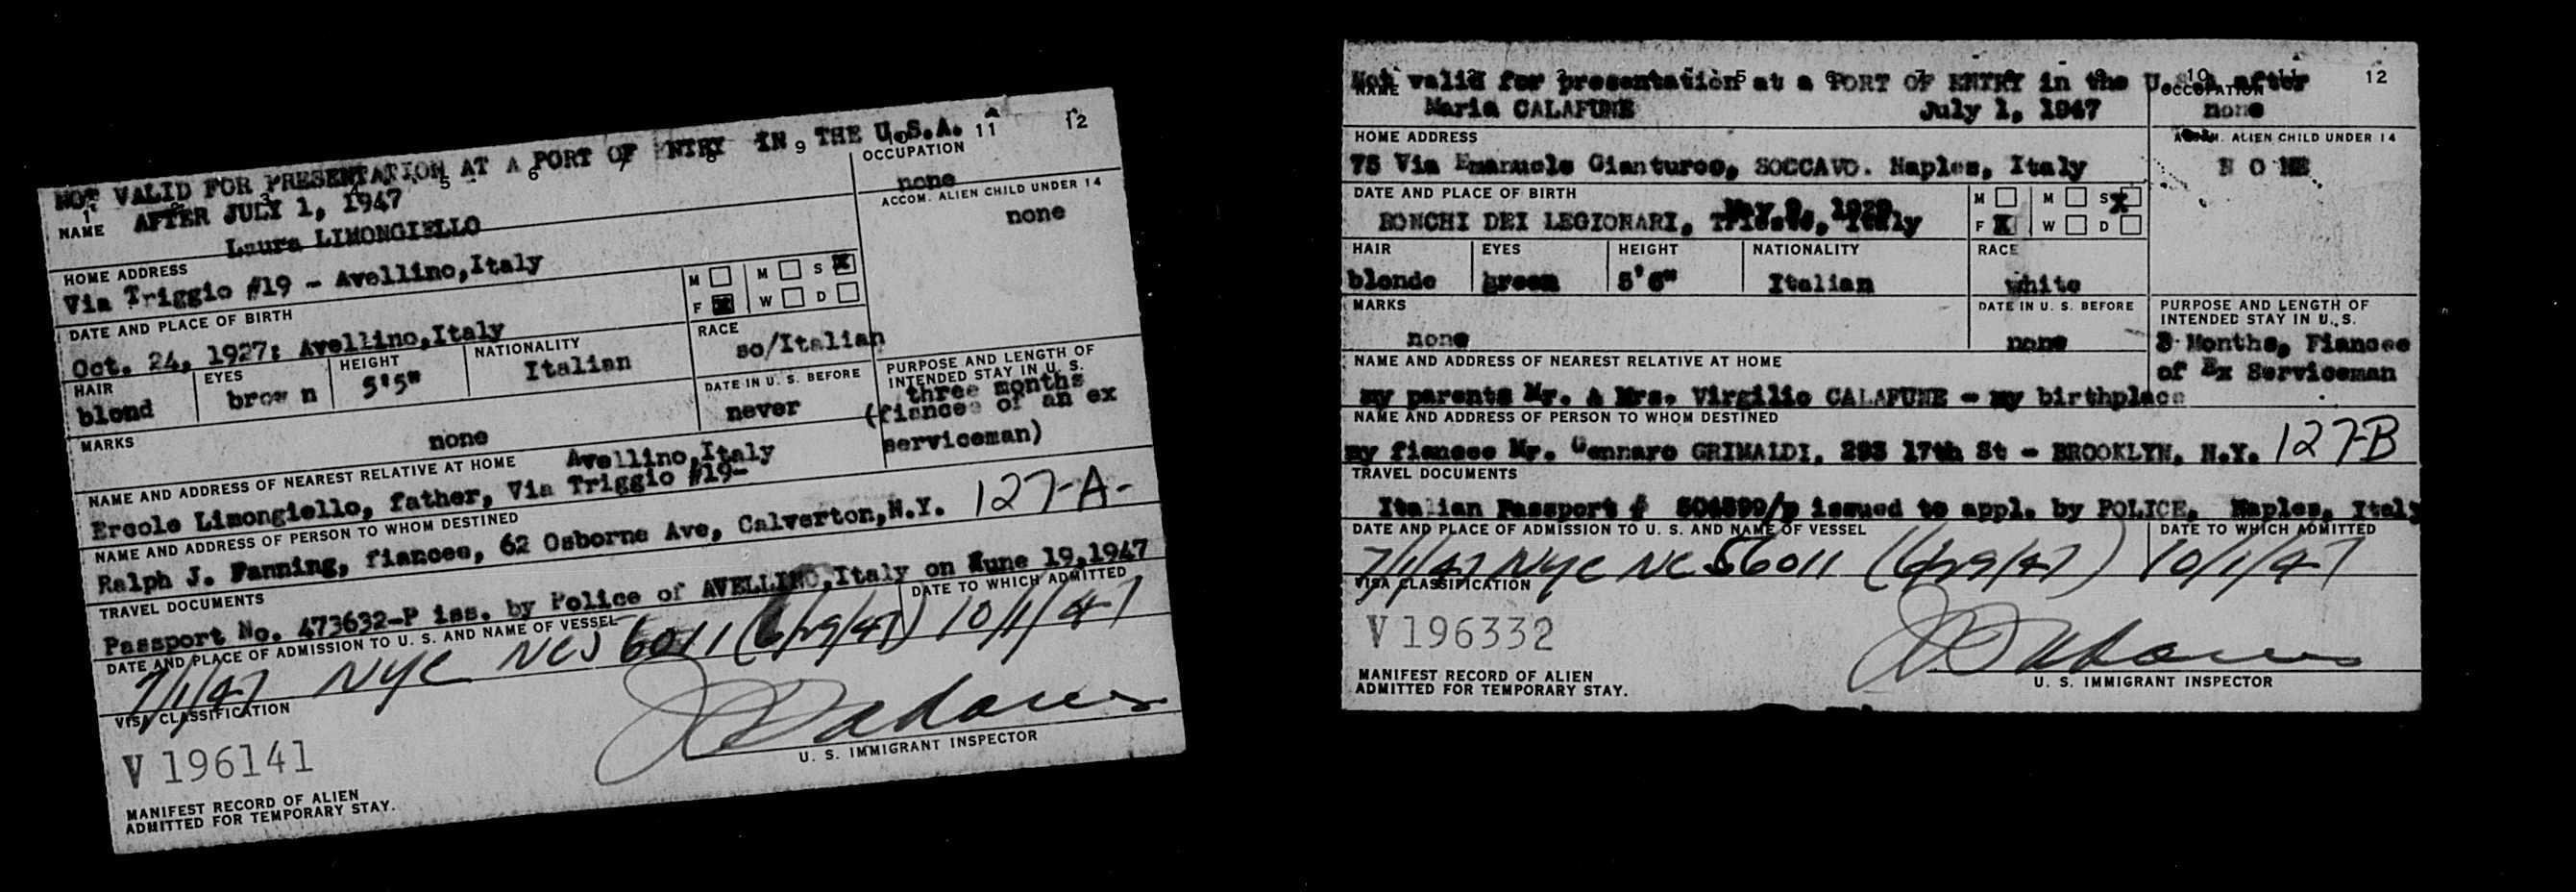 1 3 4 5 6 7 8 9 10 11 12
NOT VALID FOR PRESENTATION AT A PORT OF ENTRY IN THE U.S.A.
AFTER JULY 1, 1947
NAME
Laura LIMONGIELLO
OCCUPATION
none
HOME ADDRESS
Via Triggio #19 - Avellino,Italy
ACCOM. ALIEN CHILD UNDER 14
none
DATE AND PLACE OF BIRTH
Oct. 24, 1927: Avellino,Italy
M M S X
F X W D
HAIR EYES HEIGHT NATIONALITY RACE
blond brow n 5'5" Italian so/Italian
MARKS
none
DATE IN U. S. BEFORE
never
PURPOSE AND LENGTH OF
INTENDED STAY IN U. S.
three months
(fiancee of an ex
serviceman)
NAME AND ADDRESS OF NEAREST RELATIVE AT HOME
Avellino,Italy
Ercole Limongiello, father, Via Triggio #19-
NAME AND ADDRESS OF PERSON TO WHOM DESTINED
Ralph J. Fanning, fiancee, 62 Osborne Ave, Calverton,N.Y. 127-A-
TRAVEL DOCUMENTS
Passport No. 473632-P iss. by Police of AVELLINO,Italy on June 19,1947
DATE AND PLACE OF ADMISSION TO U. S. AND NAME OF VESSEL
DATE TO WHICH ADMITTED
7/1/47 NYC 6011 (6/29/47) 10/1/47
VISA CLASSIFICATION
V 196141
U. S. IMMIGRANT INSPECTOR
MANIFEST RECORD OF ALIEN
ADMITTED FOR TEMPORARY STAY.
Not valid for presentation at a PORT OF ENTRY in the U.S.A. after
12
NAME
Maria CALAFUNE July 1, 1947
OCCUPATION
none
HOME ADDRESS
75 Via Emanuele Gianturco, SOCCAVO. Naples, Italy
ALIEN CHILD UNDER 14
N O NE
DATE AND PLACE OF BIRTH
RONCHI DEI LEGIONARI, Trieste, Italy
M M S X
F X W D
HAIR EYES HEIGHT NATIONALITY RACE
blonde green 5'6" Italian white
MARKS
none
DATE IN U. S. BEFORE
none
PURPOSE AND LENGTH OF
INTENDED STAY IN U. S.
3 Months, Fiancee
of Ex Serviceman
NAME AND ADDRESS OF NEAREST RELATIVE AT HOME
my parents Mr. & Mrs. Virgilio CALAFUNE - my birthplace
NAME AND ADDRESS OF PERSON TO WHOM DESTINED
my fiancee Mr. Gennaro GRIMALDI, 293 17th St - BROOKLYN, N.Y. 127-B
TRAVEL DOCUMENTS
Italian Passport # issued to appl. by POLICE, Naples, Italy
DATE AND PLACE OF ADMISSION TO U. S. AND NAME OF VESSEL
DATE TO WHICH ADMITTED
7/1/47 NYC NC 56011 (6/29/47) 10/1/47
VISA CLASSIFICATION
V 196332
U. S. IMMIGRANT INSPECTOR
MANIFEST RECORD OF ALIEN
ADMITTED FOR TEMPORARY STAY.